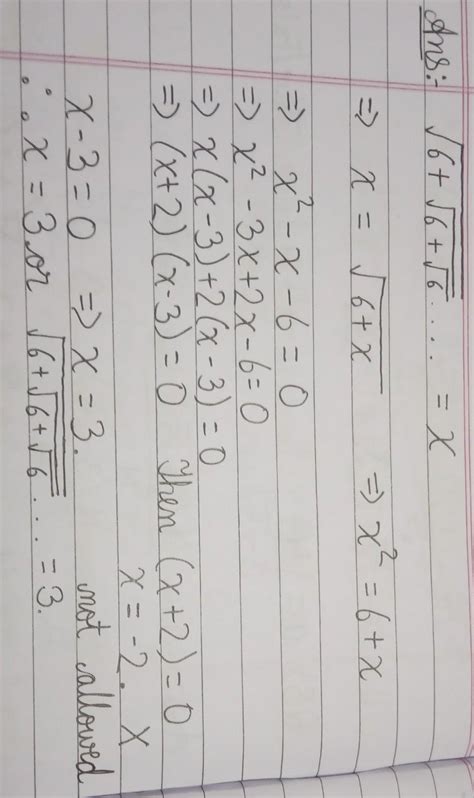 Ans:- √6+√6+√6.... = x
⇒ x = √6+x ⇒ x² = 6+x
⇒ x² - x - 6 = 0
⇒ x² - 3x + 2x - 6 = 0
⇒ x(x-3)+2(x-3) = 0
⇒ (x+2) (x-3) = 0 Then (x+2) = 0
x = -2. X
x-3 = 0 ⇒ x = 3. not allowed
∴ x = 3 or √6+√6+√6... = 3.